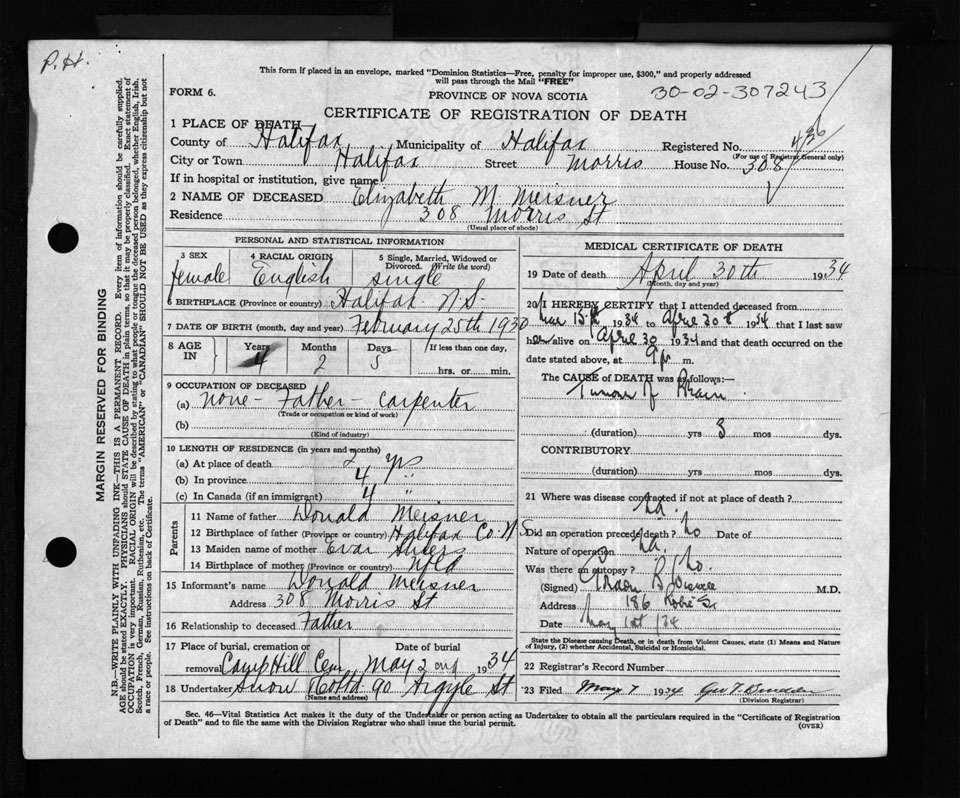 P.H.
This form if placed in an envelope, marked "Dominion Statistics—Free, penalty for improper use, $300," and properly addressed
will pass through the Mail "FREE"
FORM 6.
PROVINCE OF NOVA SCOTIA
30-02-307243
CERTIFICATE OF REGISTRATION OF DEATH
1 PLACE OF DEATH—
County of Halifax Municipality of Halifax Registered No. 436
(For use of Registrar General only)
City or Town Halifax Street Morris House No. 308
If in hospital or institution, give name
2 NAME OF DECEASED Elizabeth M Meisner
Residence 308 Morris St
(Usual place of abode)
PERSONAL AND STATISTICAL INFORMATION
3 SEX 4 RACIAL ORIGIN 5 Single, Married, Widowed or Divorced. (Write the word)
female English single
6 BIRTHPLACE (Province or country) Halifax N.S.
7 DATE OF BIRTH (month, day and year) February 25th 1930
8 AGE IN Years Months Days If less than one day,
4 2 5 hrs. or min.
9 OCCUPATION OF DECEASED
(a) none - Father - carpenter
(Trade or occupation or kind of work)
(b)
(Kind of industry)
10 LENGTH OF RESIDENCE (in years and months)
(a) At place of death 2 yrs
(b) In province 4 "
(c) In Canada (if an immigrant) 4 "
Parents
11 Name of father Donald Meisner
12 Birthplace of father (Province or country) Halifax Co. N.S
13 Maiden name of mother
14 Birthplace of mother (Province or country) Nfld
15 Informant's name Donald Meisner
Address 308 Morris St
16 Relationship to deceased Father
17 Place of burial, cremation or removal Date of burial
Camp Hill Cem May 2nd 1934
18 Undertaker Snow & Co Ltd 90 Argyle St
(Name and address)
MEDICAL CERTIFICATE OF DEATH
19 Date of death April 30th 1934
(Month, day and year)
20 I HEREBY CERTIFY that I attended deceased from
15th 1934 to April 30th 1934 that I last saw
her alive on April 30 1934 and that death occurred on the
date stated above, at 9 p m.
The CAUSE of DEATH was as follows:—
Tumor of Brain
(duration) yrs 3 mos dys.
CONTRIBUTORY
(duration) yrs mos dys.
21 Where was disease contracted if not at place of death?
Did an operation precede death? No Date of
Nature of operation
Was there an autopsy? No
(Signed) M.D.
Address 186 Robie St
Date May 1st /34
State the Disease causing Death, or in death from Violent Causes, state (1) Means and Nature
of Injury, (2) whether Accidental, Suicidal or Homicidal.
22 Registrar's Record Number
23 Filed May 7 1934 Geo T.
(Division Registrar)
Sec. 46—Vital Statistics Act makes it the duty of the Undertaker or person acting as Undertaker to obtain all the particulars required in the "Certificate of Registration
of Death" and to file the same with the Division Registrar who shall issue the burial permit.
(OVER)
MARGIN RESERVED FOR BINDING
N.B.—WRITE PLAINLY WITH UNFADING INK—THIS IS A PERMANENT RECORD. Every item of information should be carefully supplied.
AGE should be stated EXACTLY. PHYSICIANS should STATE CAUSE OF DEATH in plain terms, so that it may be properly classified. Exact statement of
OCCUPATION is very important. RACIAL ORIGIN will be described by stating to what people or tongue the deceased person belonged, whether English, Irish,
Scotch, French, German, Russian, Ruthenian, etc. The terms "AMERICAN" or "CANADIAN" SHOULD NOT BE USED as they express citizenship but not
a race or people. See instructions on back of Certificate.